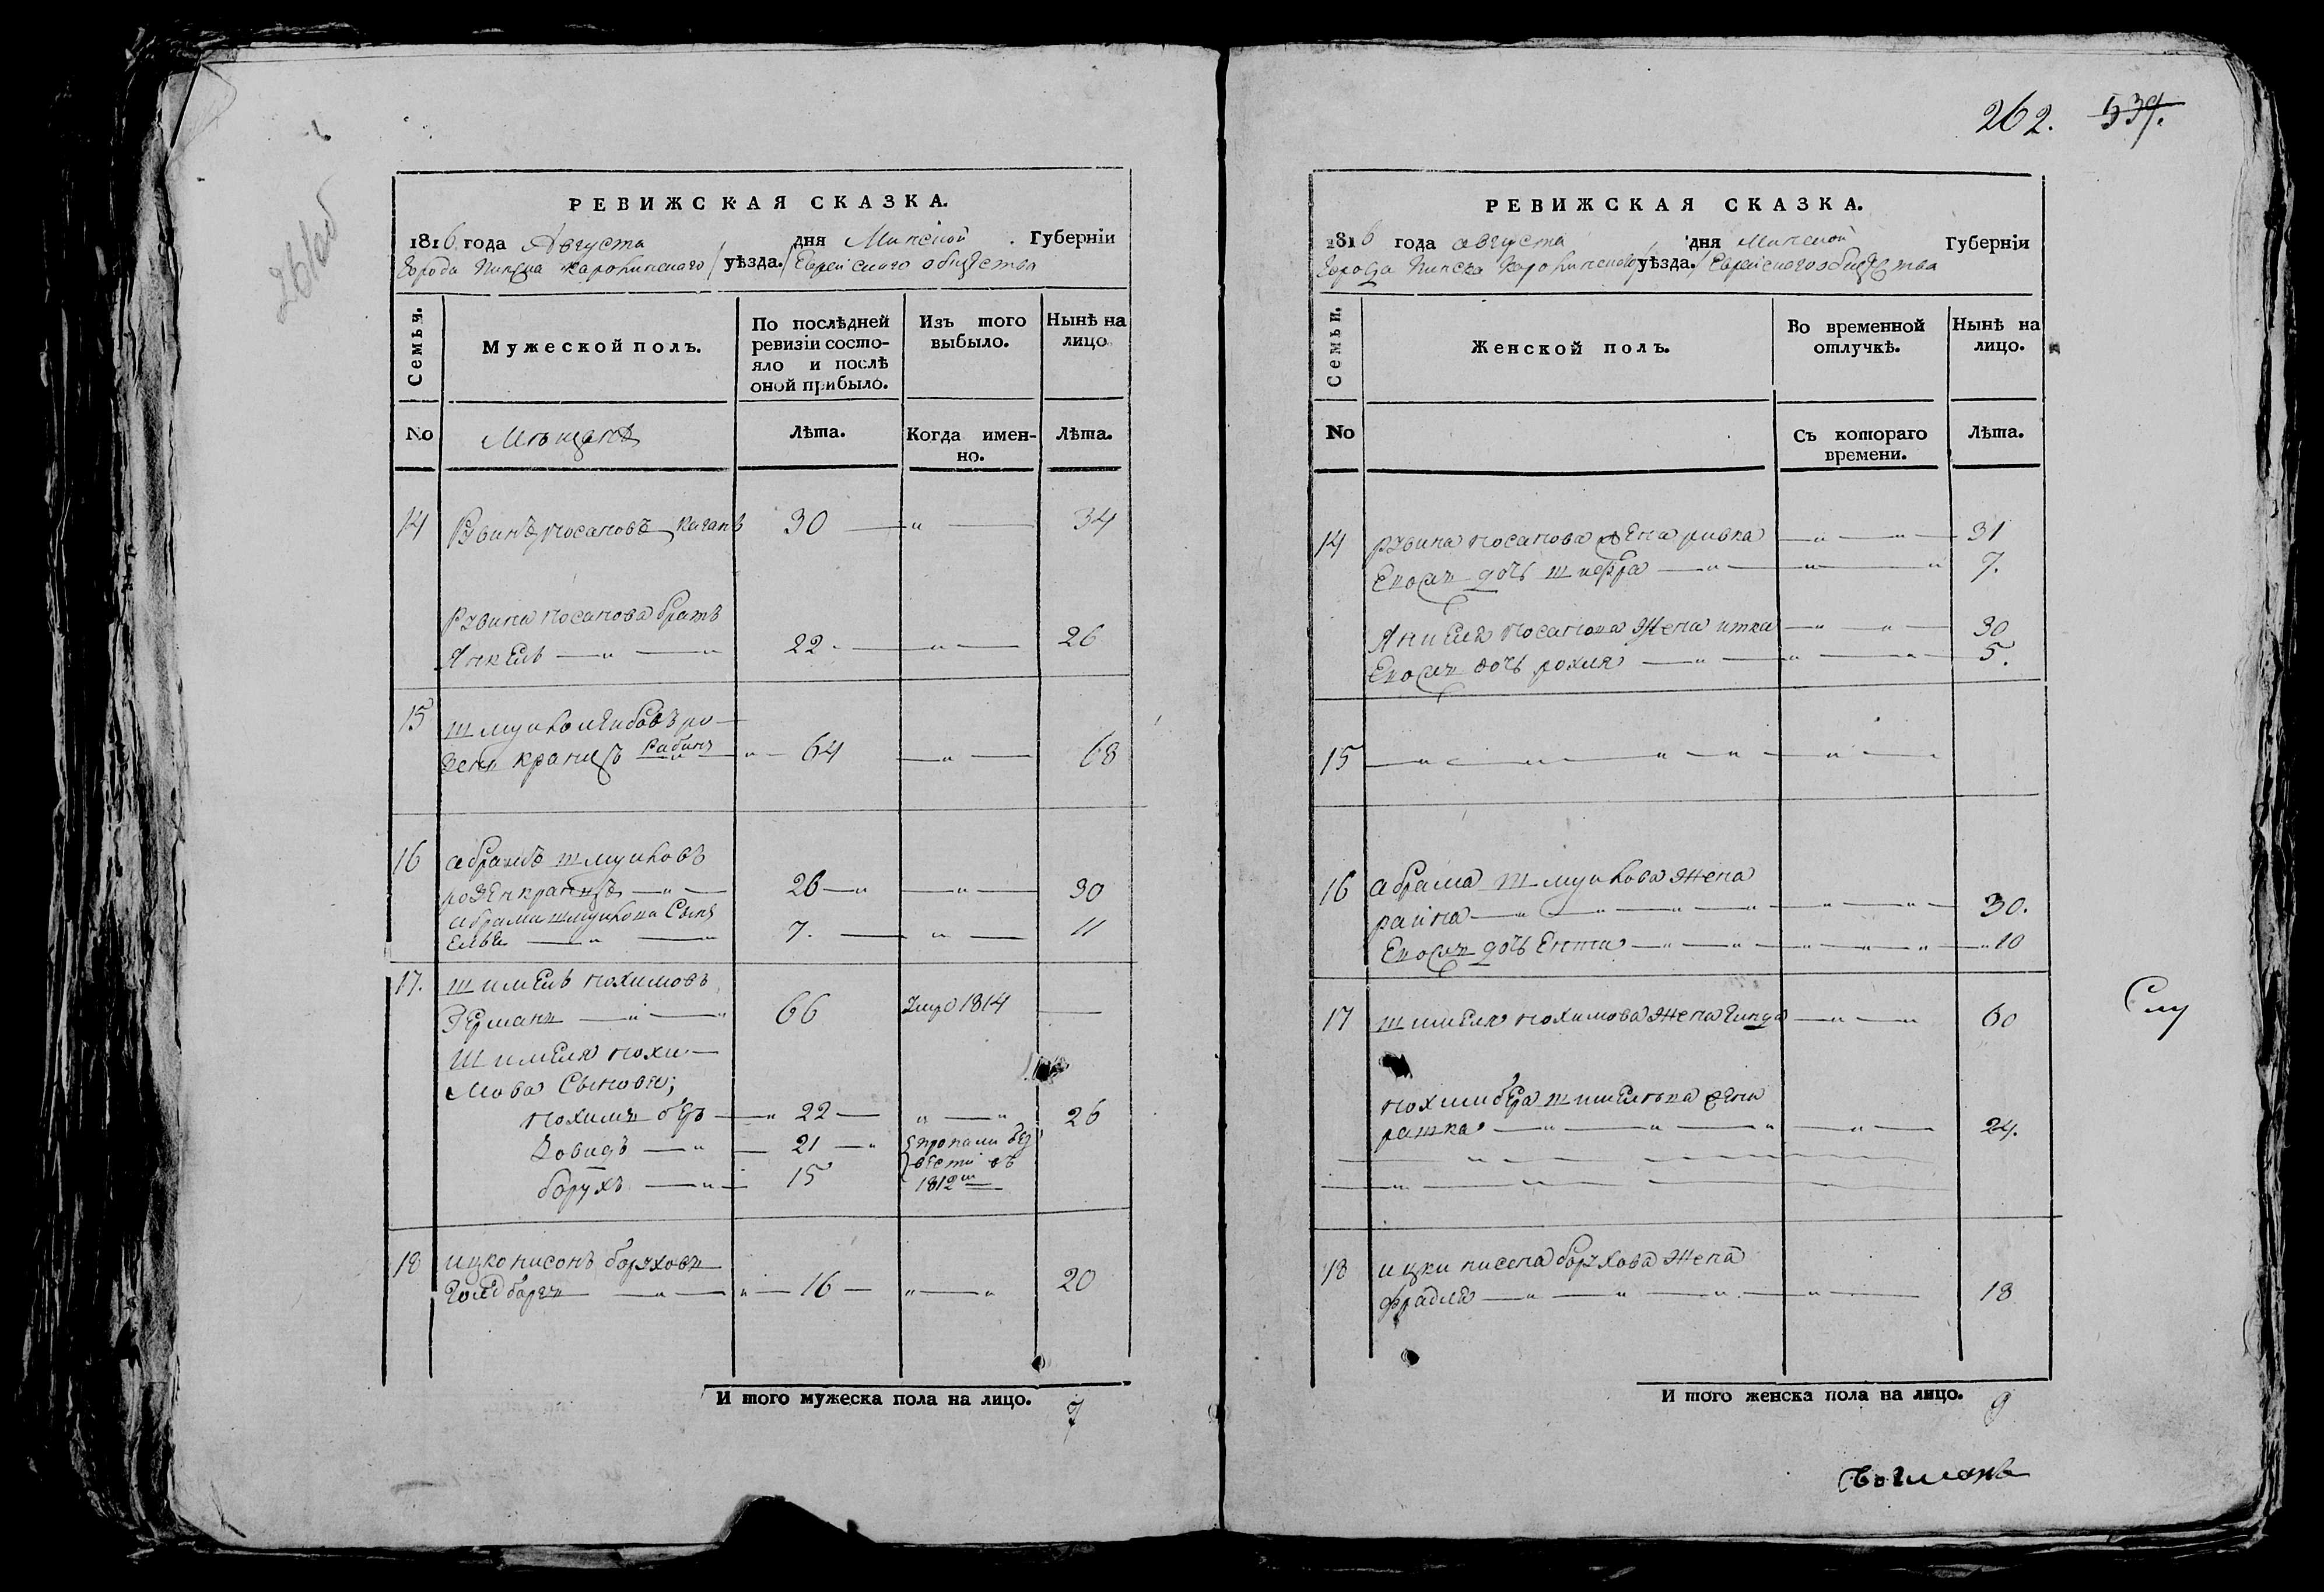 262. 537.
РЕВИЖСКАЯ СКАЗКА.
1816 года Августа дня Минской Губерніи
Города Пинска Каролинского уѣзда. Еврейского общества
Семьи.
Мужеской полъ.
По послѣдней ревизіи состояло и послѣ оной прибыло.
Изъ того выбыло.
Нынѣ на лицо
No Мѣщанѣ Лѣта. Когда именно. Лѣта.
14 Рувинъ Носановъ Каганъ 30 — „ — 34
Рувина Носанова братъ
Янкель — „ — „ 22 — „ — 26
15 Шмуйло Лейбовъ Ро-
зенкранцъ Рабинъ — „ — 64 — „ — 68
16 Абрамъ Шмуйловъ
Розенкранцъ — „ — 26 — „ — „ — 30
Абрама Шмуйлова Сынъ
Елья — „ — „ 7. — „ — 11
17. Шимель Нохимовъ
Германъ — „ — „ 66 1814 —
Шимеля Нохи-
мова Сыновья;
Нохимъ бер — „ 22 — „ — „ 26
Довидъ — „ — 21 — „ пропали без
Борухъ — „ — 15 вести въ 1812м
18 Ицко Нисонъ Борухов
Голдбарг — „ — „ — 16 — „ — „ 20
И того мужеска пола на лицо. 7
РЕВИЖСКАЯ СКАЗКА.
1816 года августа дня Минской Губерніи
Города Пинска Каролинского уѣзда. Еврейского общества
Семьи.
Женской полъ.
Во временной отлучкѣ.
Нынѣ на лицо.
No Съ котораго времени. Лѣта.
14 Рувина Носанова жена Ривка — „ — „ — 31
Еносін дочь Шифра — „ — „ — „ 7.
Янкеля Носанова Жена Итка — „ — „ — 30
Еносін дочь Рохля — „ — „ — „ — 5.
15 — „ — „ — „ — „ — „ —
16 Абрама Шмуйлова Жена
Райна — „ — „ — „ — „ — „ — „ — 30.
Еносін дочь Ента — „ — „ — „ — „ — „ — „ 10
17 Шимеля Нохимова Жена Гинда — „ — „ 60
Нохимбера Шимелева жена
Рашка — „ — „ — „ — „ — 24.
18 Ицки Нисона Борухова Жена
Фрадля — „ — „ — „ — „ — 18
И того женска пола на лицо. 9